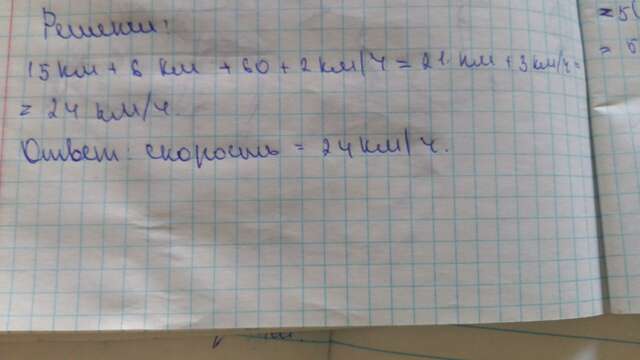 Решение:
15 км + 6 км + 60 + 2 км/ч = 21 км + 3 км/ч =
= 24 км/ч.
Ответ: скорость = 24 км/ч.